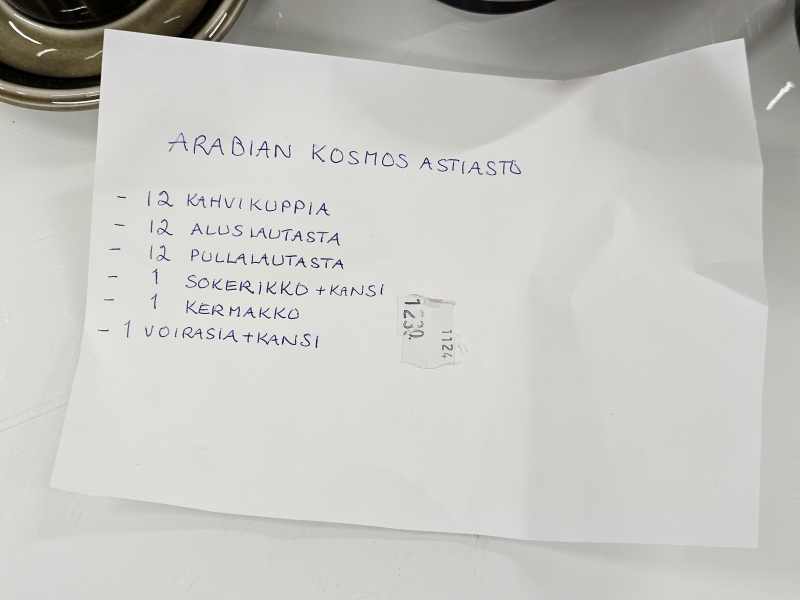 ARABIAN KOSMOS ASTIASTO
- 12 KAHVIKUPPIA
- 12 ALUSLAUTASTA
- 12 PULLALAUTASTA
- 1 SOKERIKKO + KANSI
- 1 KERMAKKO
- 1 VOIRASIA + KANSI
1124